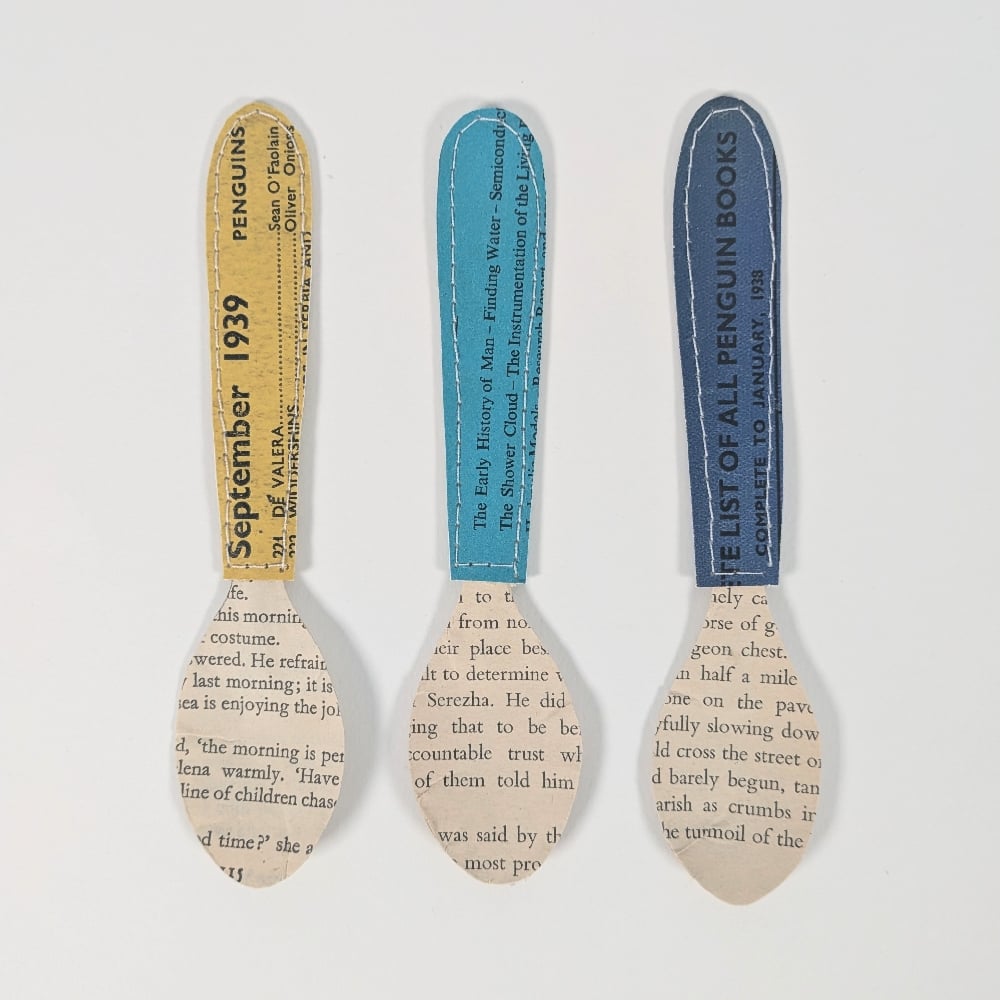 September 1939 PENGUINS
221 DE VALERA Sean O'Faolain
222 WIDDERSHINS Oliver Onions
IN SERBIA AND
fe.
his morning
costume.
wered. He refrain
last morning; it is
sea is enjoying the jo
d, 'the morning is per
lena warmly. 'Have
line of children chas
d time?' she a
The Early History of Man – Finding Water – Semiconduct
The Shower Cloud – The Instrumentation of the Living
Models Research Report and
to th
from no
eir place bes
lt to determine w
Serezha. He did
ing that to be be
countable trust wh
of them told him
was said by th
most pro
TE LIST OF ALL PENGUIN BOOKS
COMPLETE TO JANUARY, 1938
nely ca
orse of g
geon chest.
in half a mile
one on the pave
yfully slowing dow
ld cross the street or
d barely begun, tan
arish as crumbs in
he turmoil of the